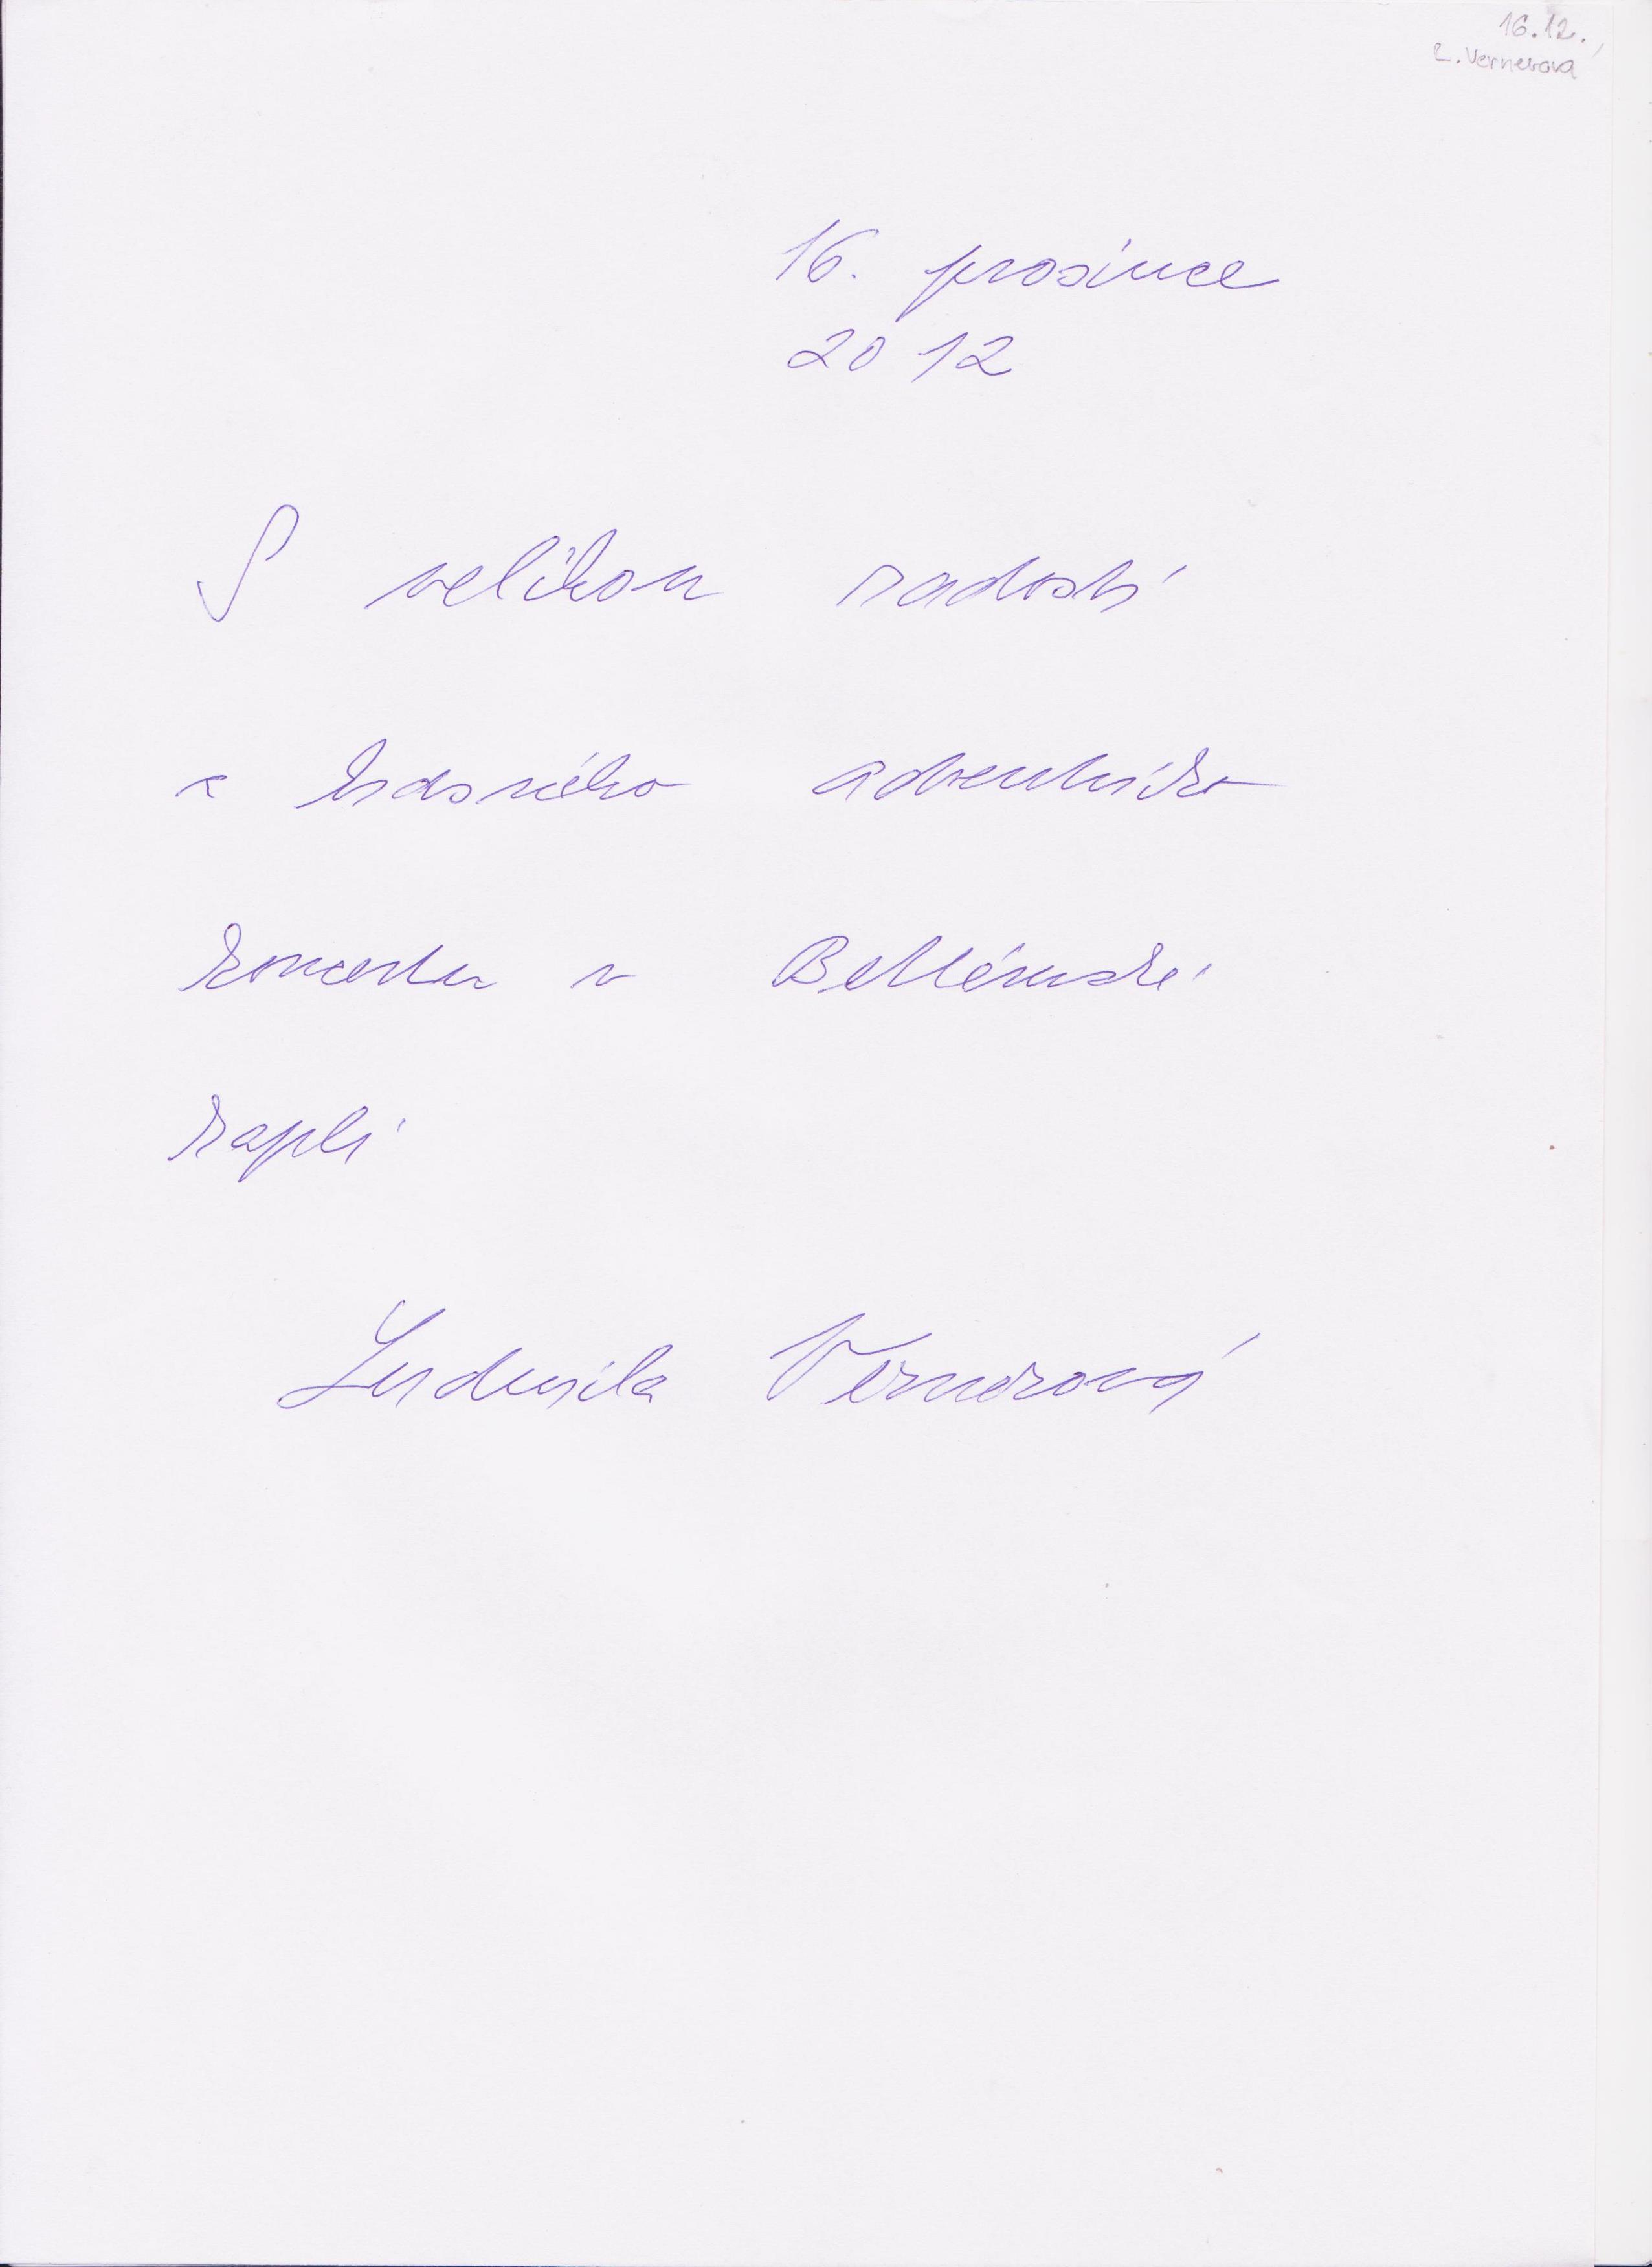 16.12.
L. Vernerova
16. prosince
2012
S velikou radostí
z krásného adventního
koncertu v Betlémské
kapli
Ludmila Vernerová